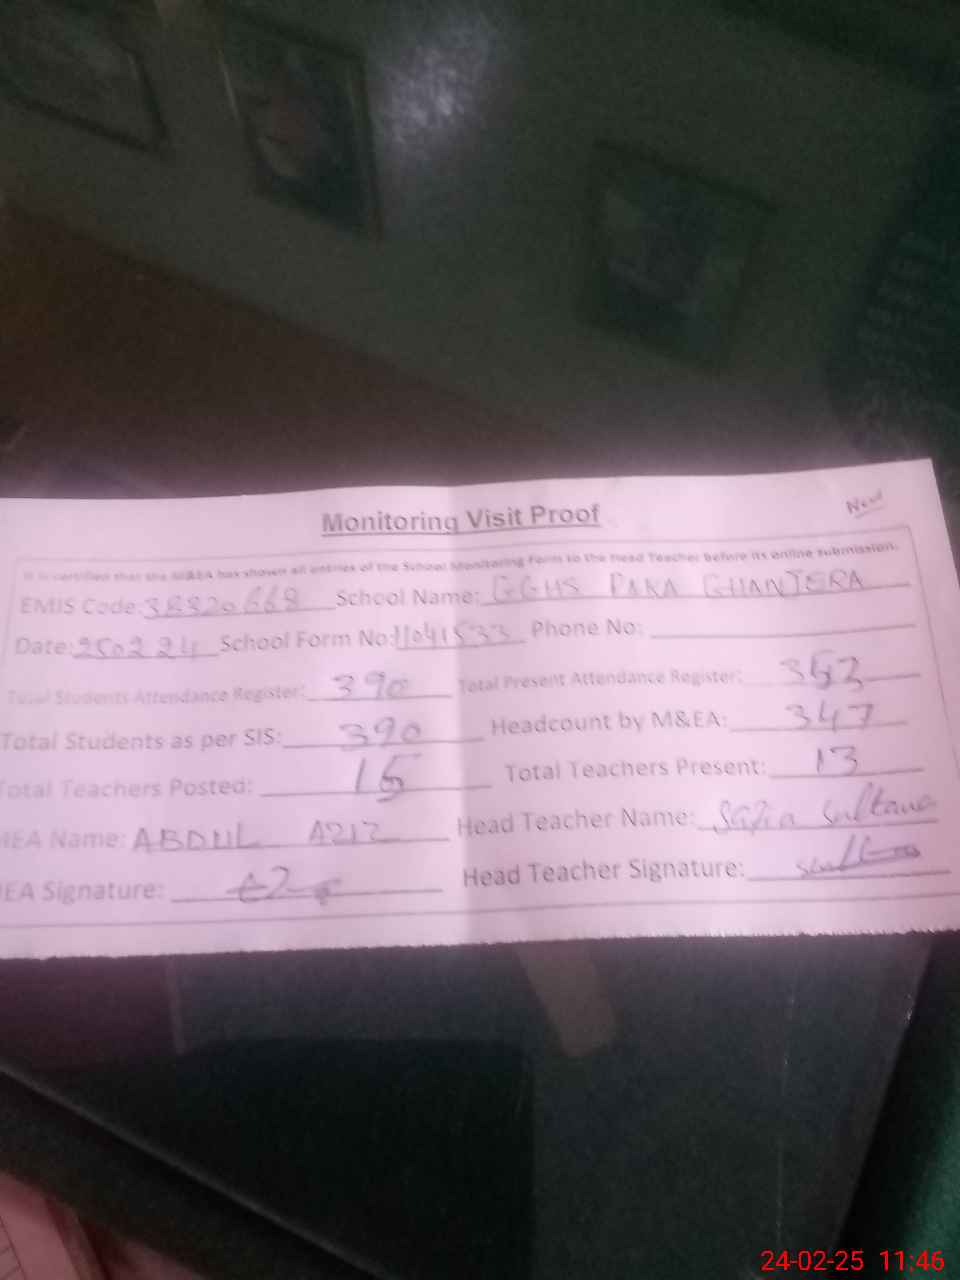 Monitoring Visit Proof
New
It is certified that the M&EA has shown all entries of the School Monitoring Form to the Head Teacher before its online submission.
EMIS Code: 38320668 School Name: GGHS PAKA GHANJERA
Date: 250224 School Form No: 11041533 Phone No:
Total Students Attendance Register: 390 Total Present Attendance Register: 353
Total Students as per SIS: 390 Headcount by M&EA: 347
Total Teachers Posted: 15 Total Teachers Present: 13
MEA Name: ABDUL AZIZ Head Teacher Name: Safia Sultana
MEA Signature: Head Teacher Signature:
24-02-25 11:46